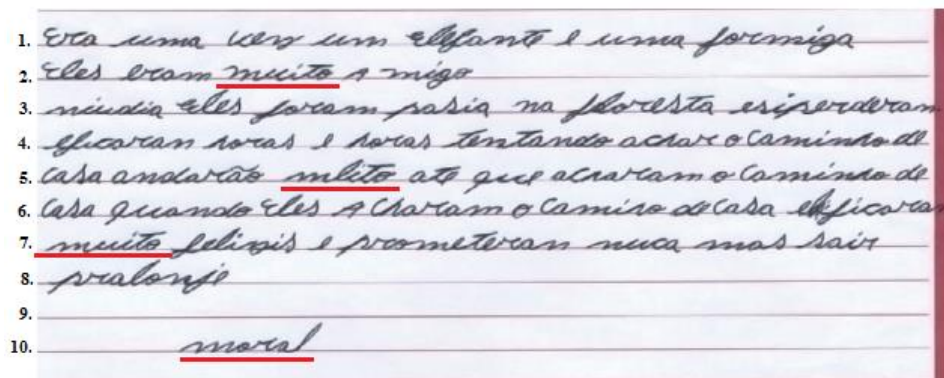 1. Era uma vez um elefante e uma formiga
2. Eles eram muito a migo
3. niudia eles foram pasia na floresta esiperderam
4. eficaran horas e horas tentando achar o caminho de
5. casa andarão mlito ate que acharam o caminho de
6. casa quando eles A charam o camiho de casa eficaran
7. muito felizis e prometeran nuca mas sair
8. pralonje
9.
10. moral